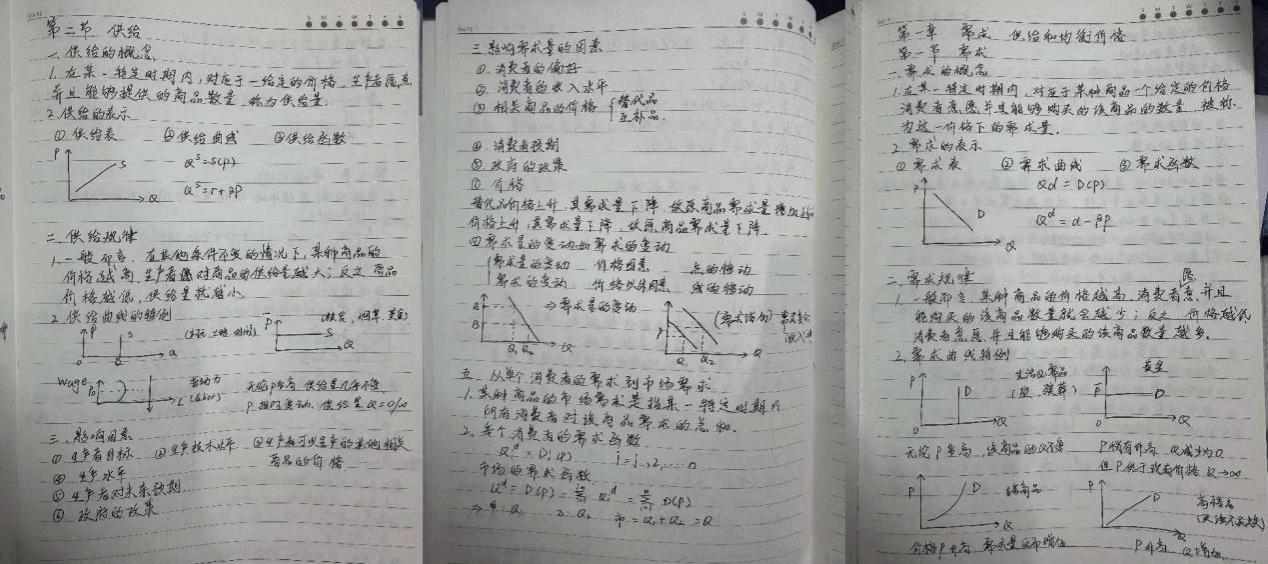 第二节 供给
一、供给的概念
1. 在某一特定时期内,对应于一给定的价格,生产者愿意
并且能够提供的商品数量,称为供给量.
2. 供给的表示
① 供给表 ② 供给曲线 ③ 供给函数
P
S
Q
Qˢ=S(P)
Qˢ=r+βP
二、供给规律
1. 一般而言,在其他条件不变的情况下,某种商品的
价格越高,生产者对商品的供给量越大;反之,商品
价格越低,供给量就越小.
2. 供给曲线的特例
P
S
Q
P
S
Q
wage
P₀
L (labor)
劳动力
无论P多高,供给量几乎不变
P 供给量Q=0/∞
三、影响因素
① 生产者目标 ② 生产技术水平 ③ 生产者可以生产的其他相关
商品的价格
④ 生产水平
⑤ 生产者对未来预期
⑥ 政府的政策
三、影响需求量的因素
①. 消费者的偏好
② 消费者的收入水平
③ 相关商品的价格 { 替代品
互补品.
④. 消费者预期
⑤. 政府的政策
⑥ 价格
替代品价格上升,其需求量下降,故原商品需求量增加
价格上升,其需求量下降,故原商品需求量下降
四 需求量的变动和需求的变动
需求量的变动 价格因素 点的移动
需求的变动 价格以外因素 线的移动
→需求量的变动
Q₁ Q₂ Q
P
Q₁ Q₂
Q
五、从单个消费者的需求到市场需求
1. 某种商品的市场需求是指某一特定时期内
所有消费者对该商品需求的总和.
2. 每个消费者的需求函数
i=1,2,……n
市场的需求函数
Qᵈ=D(P)=
⇒ 甲:Q₁ 乙:Q₂ 市=Q₁+Q₂=Q
第一章 需求、供给和均衡价格
第一节 需求
一、需求的概念
1. 在某一特定时期内,对应于某种商品一个给定的价格
消费者愿意并且能够购买的该商品的数量,被称
为这一价格下的需求量.
2. 需求的表示
① 需求表 ② 需求曲线 ③ 需求函数
P
D
Q
Qd=D(P)
Qᵈ=α-βP
二、需求规律
愿
1. 一般而言,某种商品的价格越高,消费者意并且
能购买的该商品数量就会越少;反之,价格越低
消费者意愿并且能够购买的该商品数量越多.
2. 需求曲线特例
P
D
Q
生活必需品
P
D
Q
黄金
无论P多高,该商品的Q不变
P稍有升高,Q减少为0
但P低于现有价格 Q→∞
P
D
Q
P
D
Q
价格P升高,需求量反而增加
P升高 Q增加